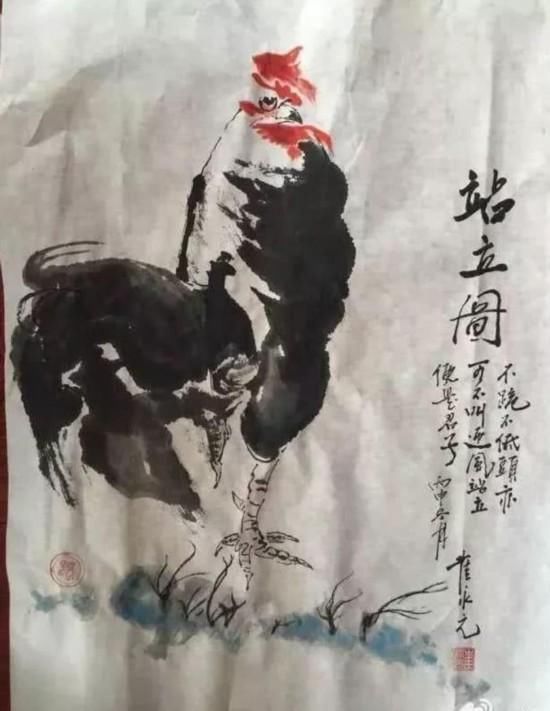 站立圖
不跪不低頭亦
可不叫迎風站立
便是君子
丙申冬月
崔永元